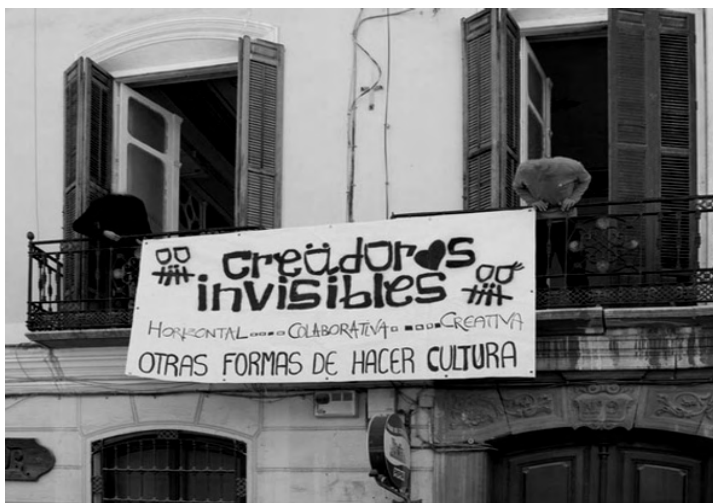 creador♥s
invisibles
HORIZONTAL .... COLABORATIVA. .... CREATIVA
OTRAS FORMAS DE HACER CULTURA